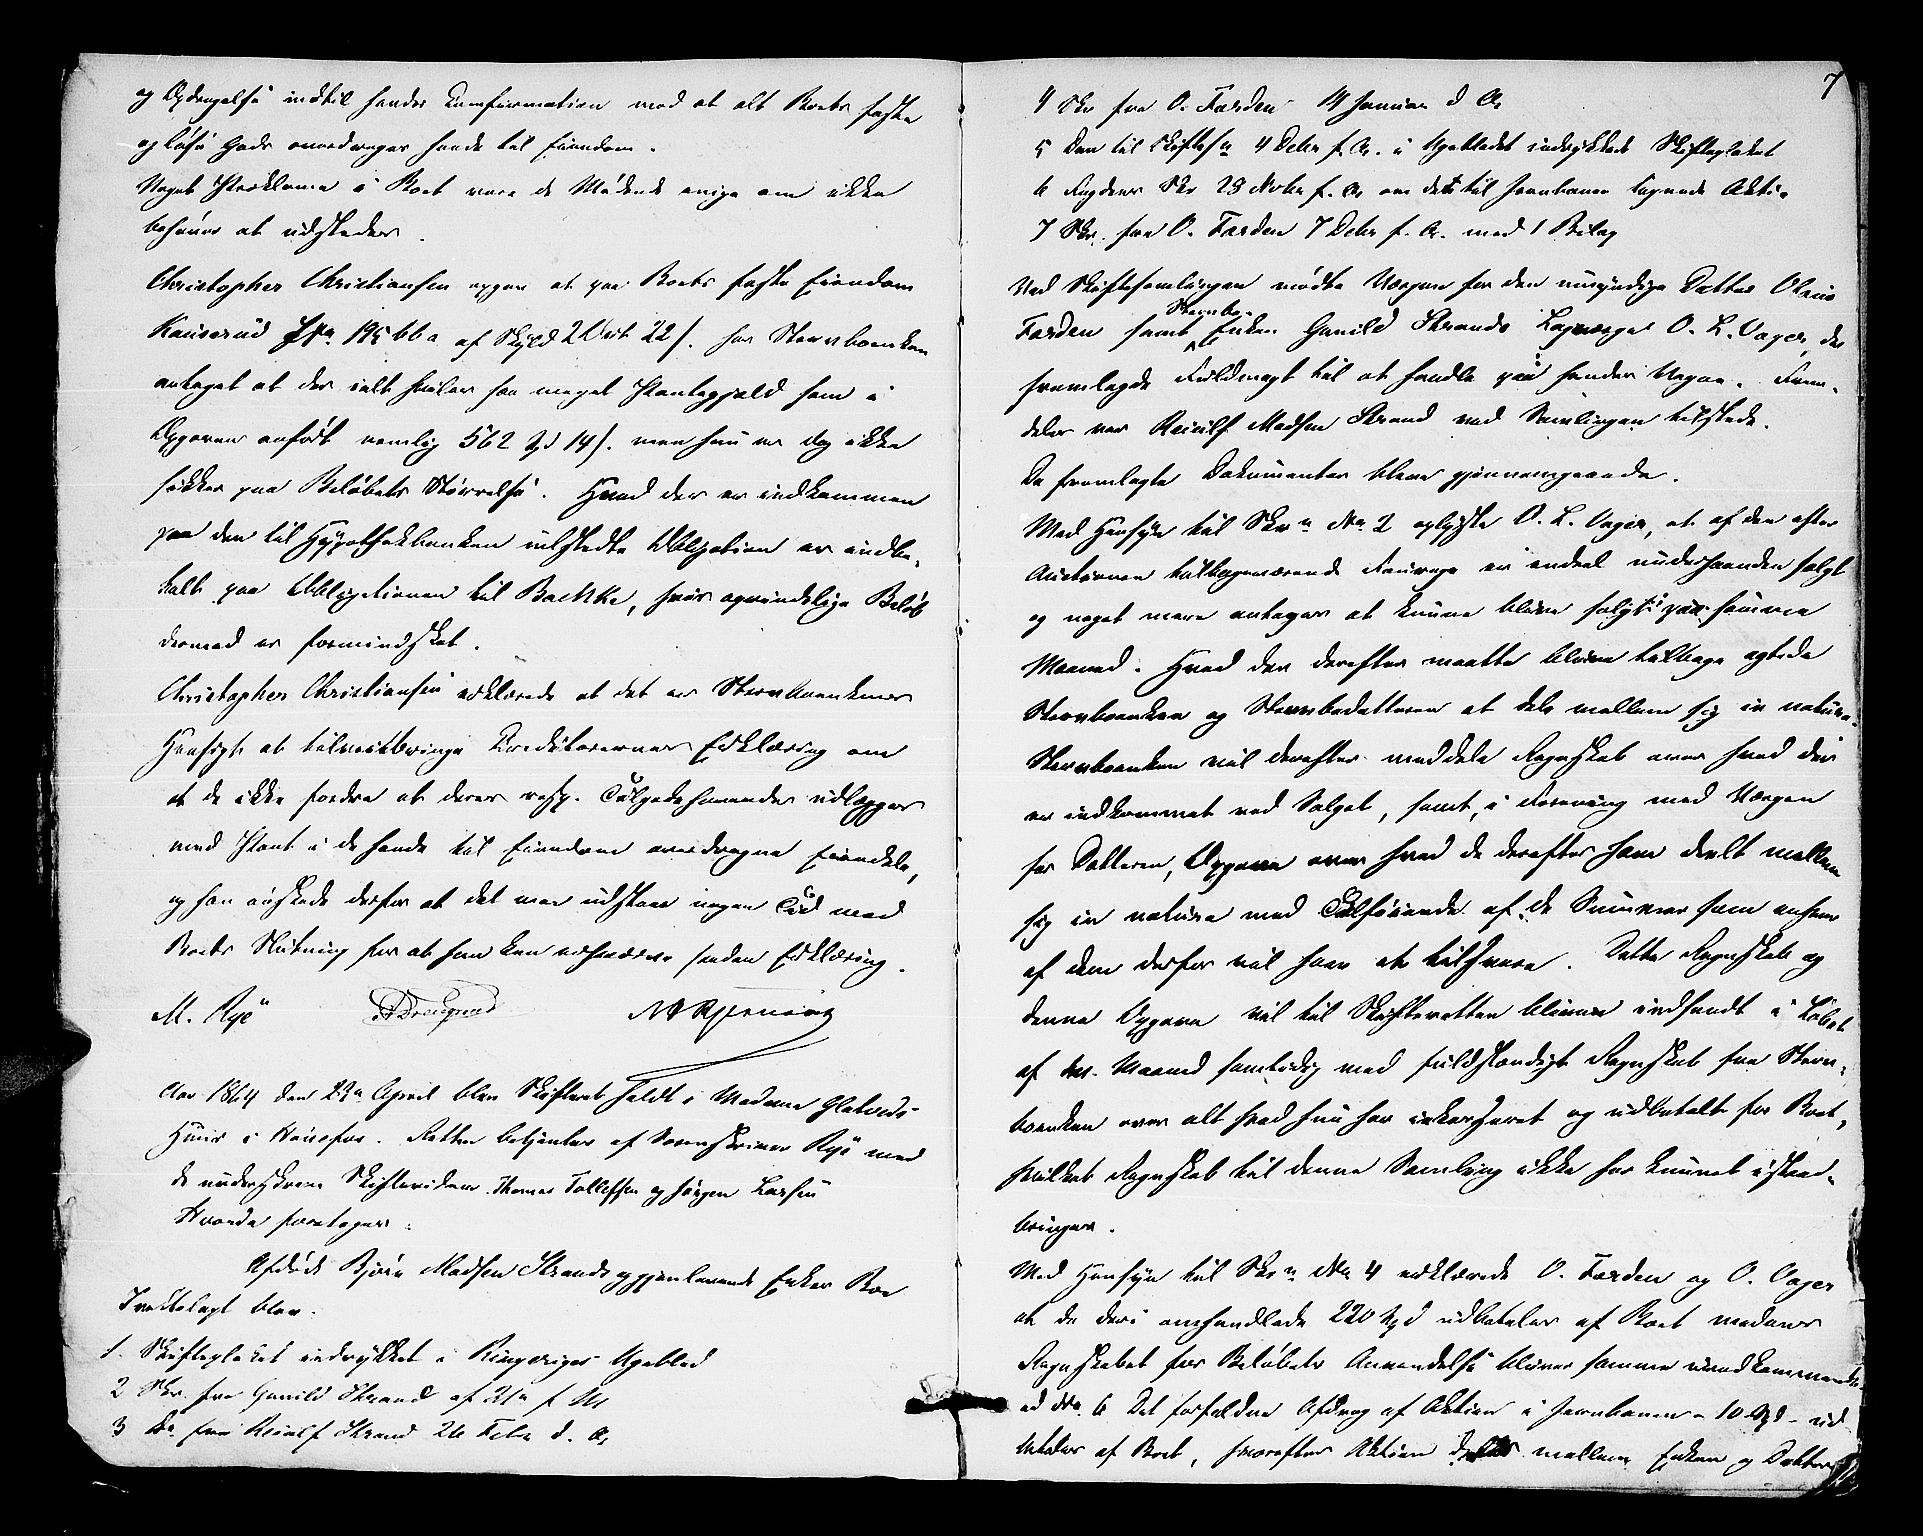 og Opdragelse indtil hendes Confirmation mod at alt Boets faste
og løse Gods overdrages hende til Eiendom.
Noget Proklama i Boet vare de Mødende enige om ikke
behøves at udstedes.
Christopher Christiansen opgav at paa Boets faste Eiendom
af Skyld 2 Ort 22 s. har Stervboenken
antaget at der ialt hviler saa meget Pantegjæld som i
Opgaven anført nemlig 562 Spd 14 s. men hun er dog ikke
sikker paa Beløbets Størrelse. Hvad der er indkommen
paa den til Hypothekbanken udstedte Obligation er indbe-
talt paa Obligationen til Bachke, hvis oprindelige Beløb
dermed er formindsket.
Christopher Christiansen erklærede at det er Stervboenkens
Hensigt at tilveiebringe Creditorernes Erklæring om
at de ikke fordre at deres resp. Tilgodehavender udlægges
med Pant i de hende til Eiendom overdragne Eiendele,
og han ønskede derfor at det maa udstaae nogen Tid med
Boets Slutning for at han kan erhverve saadan Erklæring.
M. Rye
Aar 1864 den 22de April blev Skifteret holdt i Madame Glatveds
Huus i Hønefos. Retten betjentes af Sorenskriver Rye med
de underskrevne Skiftevidner Thomas Tollefsen og Jørgen Larsen
Hvorda foretoges:
Afdøde Bjørn Madsen Strands og gjenlevende Enkes Bo
Fremlagt blev.
1. Skifteplakat indrykket i Ringeriges Ugeblad
2 Skr. fra Gunild Strand af 21de f M
3 Do. fra Reiulf Strand 26 Febr. d. A.
7
4 Skr fra O. Færden 14 Januar d A.
5 Den til Skiftes 4 Debr f. A. i Ugebladet indrykkede Skifteplakat
6 Fogdens Skr 28 Novbr f. A. om dette til Jernbanen tegnede Aktie
7 Skr. fra O. Færden 7 Debr f. A. med 1 Bilag
Ved Skiftesamlingen mødte Værgen for den umyndige Datter Olava
Færden samt Stervbo Enken Gunild Strands Laugværge O. L. Vager, der
fremlagde Fuldmagt til at handle paa hendes Vegne. Frem-
deles var Reiulf Madsen Strand ved Samlingen tilstede.
De fremlagte Dokumenter bleve gjennemgaaede.
Med Hensyn til Skr No 2 oplyste O. L. Vager, at af den efter
Auctionen tilbageværende Fourage er endeel underhaanden solgt
og noget mere antages at kunne blive solgt i samme
Maaned. Hvad der derefter maatte blive tilbage agtede
Stervboenken og Stervbodatteren at dele mellem sig in natura.
Stervboenken vil derefter meddele Regnskab over hvad der
er indkommet ved Salget, samt, i Forening med Værgen
for Datteren, Opgave over hvad de derefter have deelt mellem
sig in natura med Tilføiende af de Summer som enhver
af dem derfor vil have at tilsvare. Dette Regnskab og
denne Opgave vil til Skifteretten blive indsendt i Løbet
af Maaned samtidig med fuldstændigt Regnskab fra Sterv-
boenken over alt hvad hun har inkasseret og udbetalt for Boet,
hvilket Regnskab til denne Samling ikke har kunnet istand-
bringes.
Med Hensyn til Skr No 4 erklærede O. Færden og O. Vager
at de deri omhandlede 220 Spd udbetales af Boet medens
Regnskabet for Beløbets Anvendelse bliver samme uvedkommende
ad No. 6 Det forfaldne Afdrag af Aktien i Jernbanen - 10 Spd - ud-
betales af Boet, hvorefter Aktien deles mellem Enken og Datteren